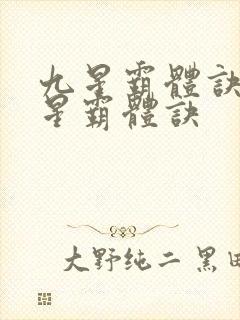 九星霸體訣
星霸體訣
大野纯二 黑田